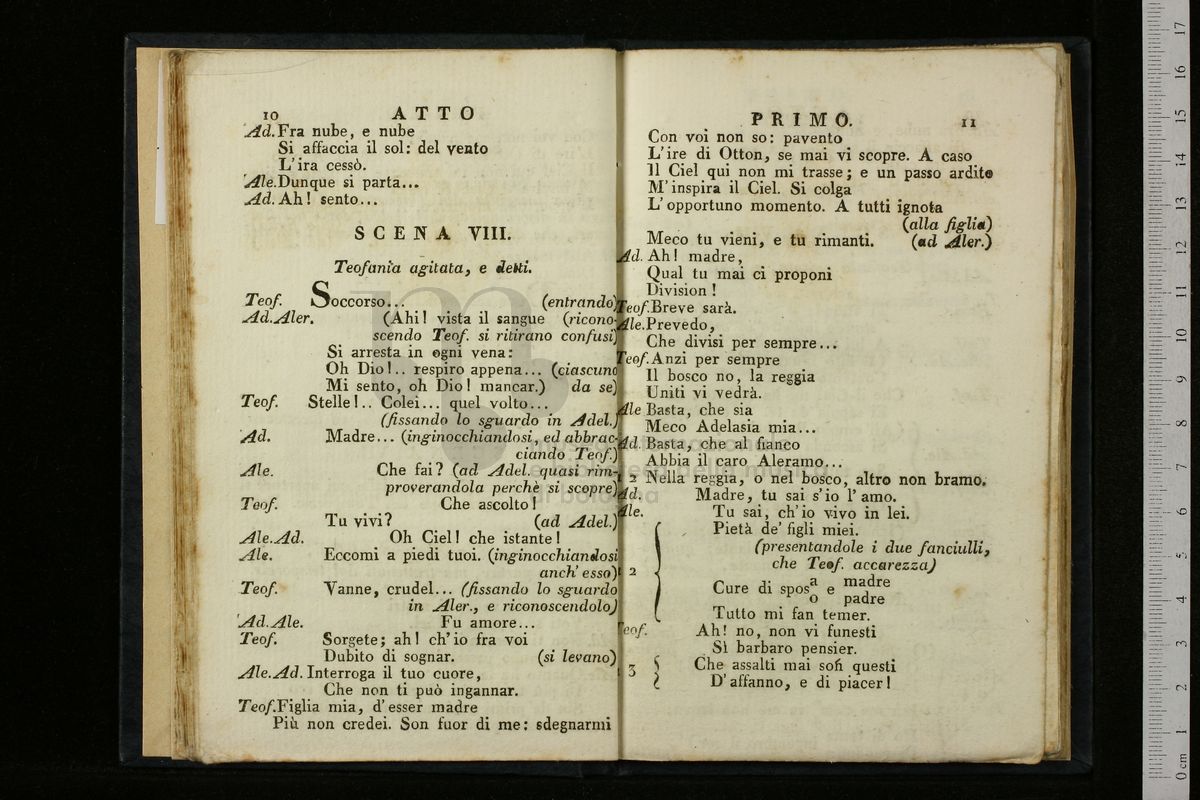 10 ATTO
Ad. Fra nube, e nube
Si affaccia il sol: del vento
L'ira cessò.
Ale. Dunque si parta...
Ad. Ah! sento...
SCENA VIII.
Teofania agitata, e detti.
Teof. Soccorso... (entrando)
Ad. Aler. (Ahi! vista il sangue (ricono-
scendo Teof. si ritirano confusi)
Si arresta in ogni vena:
Oh Dio!.. respiro appena... (ciascuno
Mi sento, oh Dio! mancar.) da se)
Teof. Stelle!.. Colei... quel volto...
(fissando lo sguardo in Adel.)
Ad. Madre... (inginocchiandosi, ed abbrac-
ciando Teof.)
Ale. Che fai? (ad Adel. quasi rim-
proverandola perchè si scopre)
Teof. Che ascolto!
Tu vivi? (ad Adel.)
Ale. Ad. Oh Ciel! che istante!
Ale. Eccomi a piedi tuoi. (inginocchiandosi
anch' esso)
Teof. Vanne, crudel... (fissando lo sguardo
in Aler., e riconoscendolo)
Ad. Ale. Fu amore...
Teof. Sorgete; ah! ch'io fra voi
Dubito di sognar. (si levano)
Ale. Ad. Interroga il tuo cuore,
Che non ti può ingannar.
Teof. Figlia mia, d'esser madre
Più non credei. Son fuor di me: sdegnarmi
PRIMO. 11
Con voi non so: pavento
L'ire di Otton, se mai vi scopre. A caso
Il Ciel qui non mi trasse; e un passo ardito
M'inspira il Ciel. Si colga
L'opportuno momento. A tutti ignota
(alla figlia)
Meco tu vieni, e tu rimanti. (ad Aler.)
Ad. Ah! madre,
Qual tu mai ci proponi
Division!
Teof. Breve sarà.
Ale. Prevedo,
Che divisi per sempre...
Teof. Anzi per sempre
Il bosco no, la reggia
Uniti vi vedrà.
Ale Basta, che sia
Meco Adelasia mia...
Ad. Basta, che al fianco
Abbia il caro Aleramo...
a 2 Nella reggia, o nel bosco, altro non bramo.
Ad. Madre, tu sai s'io l'amo.
Ale. Tu sai, ch'io vivo in lei.
Pietà de' figli miei.
(presentandole i due fanciulli,
che Teof. accarezza)
a 2 Cure di sposa e madre
o padre
Tutto mi fan temer.
Teof. Ah! no, non vi funesti
Sì barbaro pensier.
a 3 Che assalti mai son questi
D'affanno, e di piacer!